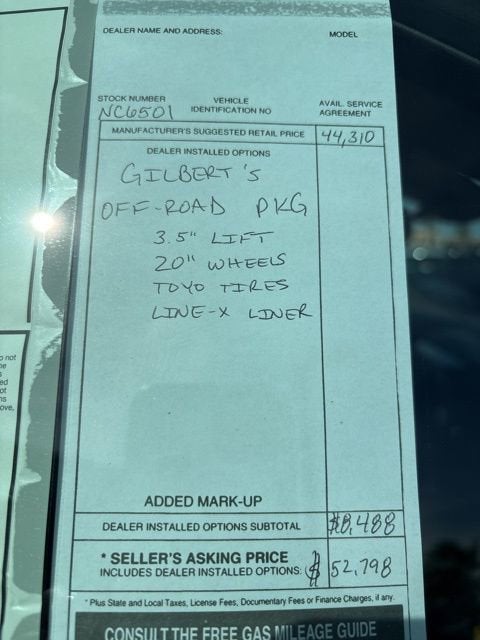 DEALER NAME AND ADDRESS: MODEL
STOCK NUMBER VEHICLE IDENTIFICATION NO AVAIL. SERVICE AGREEMENT
NC6501
MANUFACTURER'S SUGGESTED RETAIL PRICE 44,310
DEALER INSTALLED OPTIONS
GILBERT'S
OFF-ROAD PKG
3.5" LIFT
20" WHEELS
TOYO TIRES
LINE-X LINER
ADDED MARK-UP
DEALER INSTALLED OPTIONS SUBTOTAL $8,488
* SELLER'S ASKING PRICE
INCLUDES DEALER INSTALLED OPTIONS: $ 52,798
* Plus State and Local Taxes, License Fees, Documentary Fees or Finance Charges, if any.
CONSULT THE FREE GAS MILEAGE GUIDE